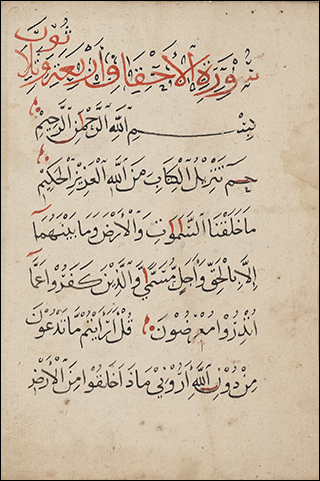 سورة الأحقاف أربعة وثلا
ثون
بِسْمِ اللَّهِ الرَّحْمٰنِ الرَّحِيْمِ
حٰمۤ تَنْزِيْلُ الْكِتَابِ مِنَ اللَّهِ الْعَزِيْزِ الْحَكِيْمِ
مَا خَلَقْنَا السَّمٰوٰتِ وَالْأَرْضَ وَمَا بَيْنَهُمَا
إِلَّا بِالْحَقِّ وَأَجَلٍ مُّسَمًّى وَالَّذِيْنَ كَفَرُوْا عَمَّا
اُنْذِرُوْا مُعْرِضُوْنَ قُلْ أَرَأَيْتُمْ مَّا تَدْعُوْنَ
مِنْ دُوْنِ اللَّهِ أَرُوْنِيْ مَاذَا خَلَقُوْا مِنَ الْأَرْضِ